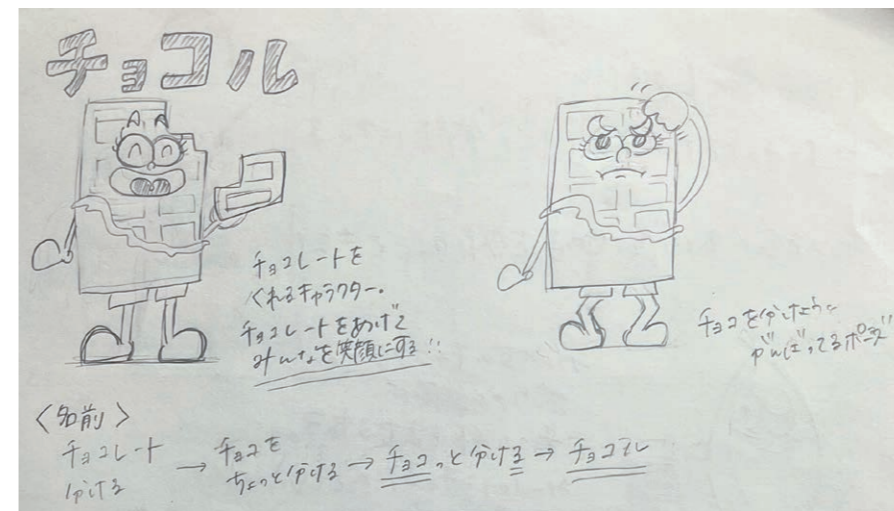 チョコル
チョコレートを
くれるキャラクター。
チョコレートをあげて
みんなを笑顔にする!!
チョコを分けようと
がんばってるポーズ
〈名前〉
チョコレート
分ける
→ チョコを
ちょっと分ける → チョコっと分ける → チョコル